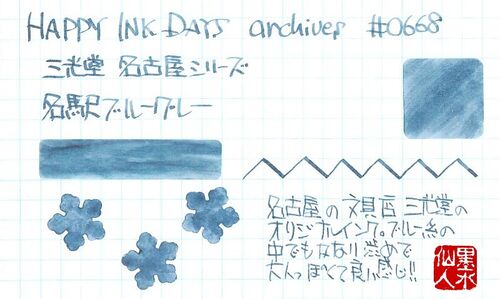 HAPPY INK DAYS archives #0668
三光堂 名古屋シリーズ
名駅ブルーグレー
名古屋の文具店 三光堂の
オリジナルインク。ブルー系の
中でもかなり渋めで
大人っぽくて良い感じ!!
墨水
仙人